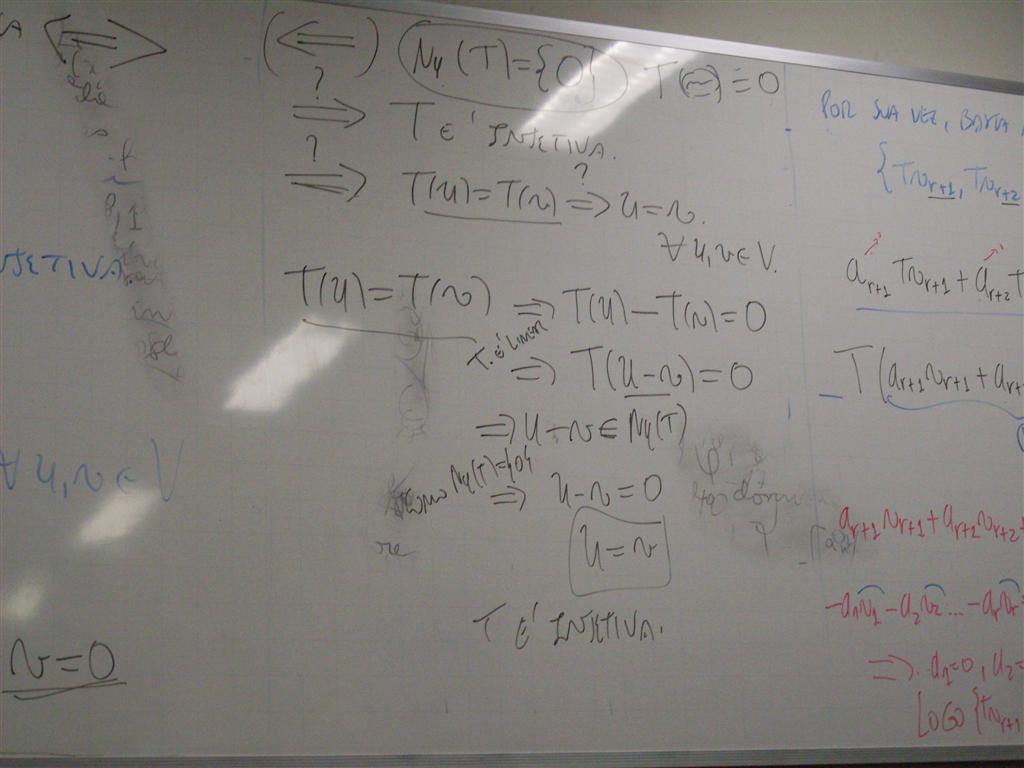 ⟺
NJETIVA.
∀ u, v ∈ V
v = 0
(⇐) Nu(T) = {0} T(~) = 0
? ⇒ T É INJETIVA.
? ⇒ T(u) = T(v) ?⇒ u = v.
∀ u, v ∈ V.
T(u) = T(v) ⇒ T(u) − T(v) = 0
T É LINEAR ⇒ T(u − v) = 0
⇒ u − v ∈ Nu(T)
COMO Nu(T)={0} ⇒ u − v = 0
u = v
T É INJETIVA.
POR SUA VEZ, BASTA
{Tv_{r+1}, Tv_{r+2}
a_{r+1} Tv_{r+1} + a_{r+2} T
T(a_{r+1} v_{r+1} + a_{r+
a_{r+1} v_{r+1} + a_{r+1} v_{r+2} +
−a_1v_1 − a_2v_2 ... − a_rv_r
⇒. a_1=0, a_2=
LOGO {Tv_{r+1}